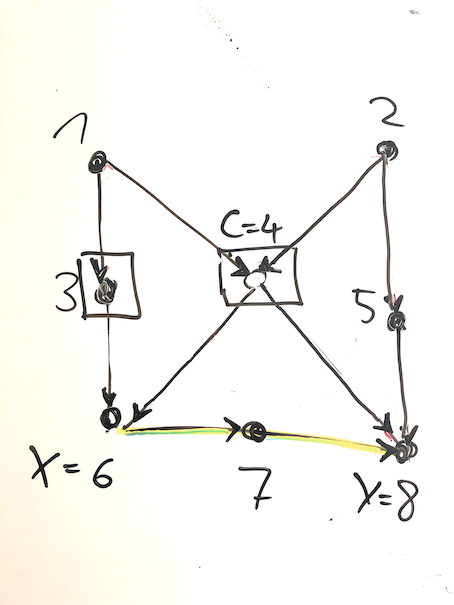 1
2
C=4
3
5
X=6
7
Y=8